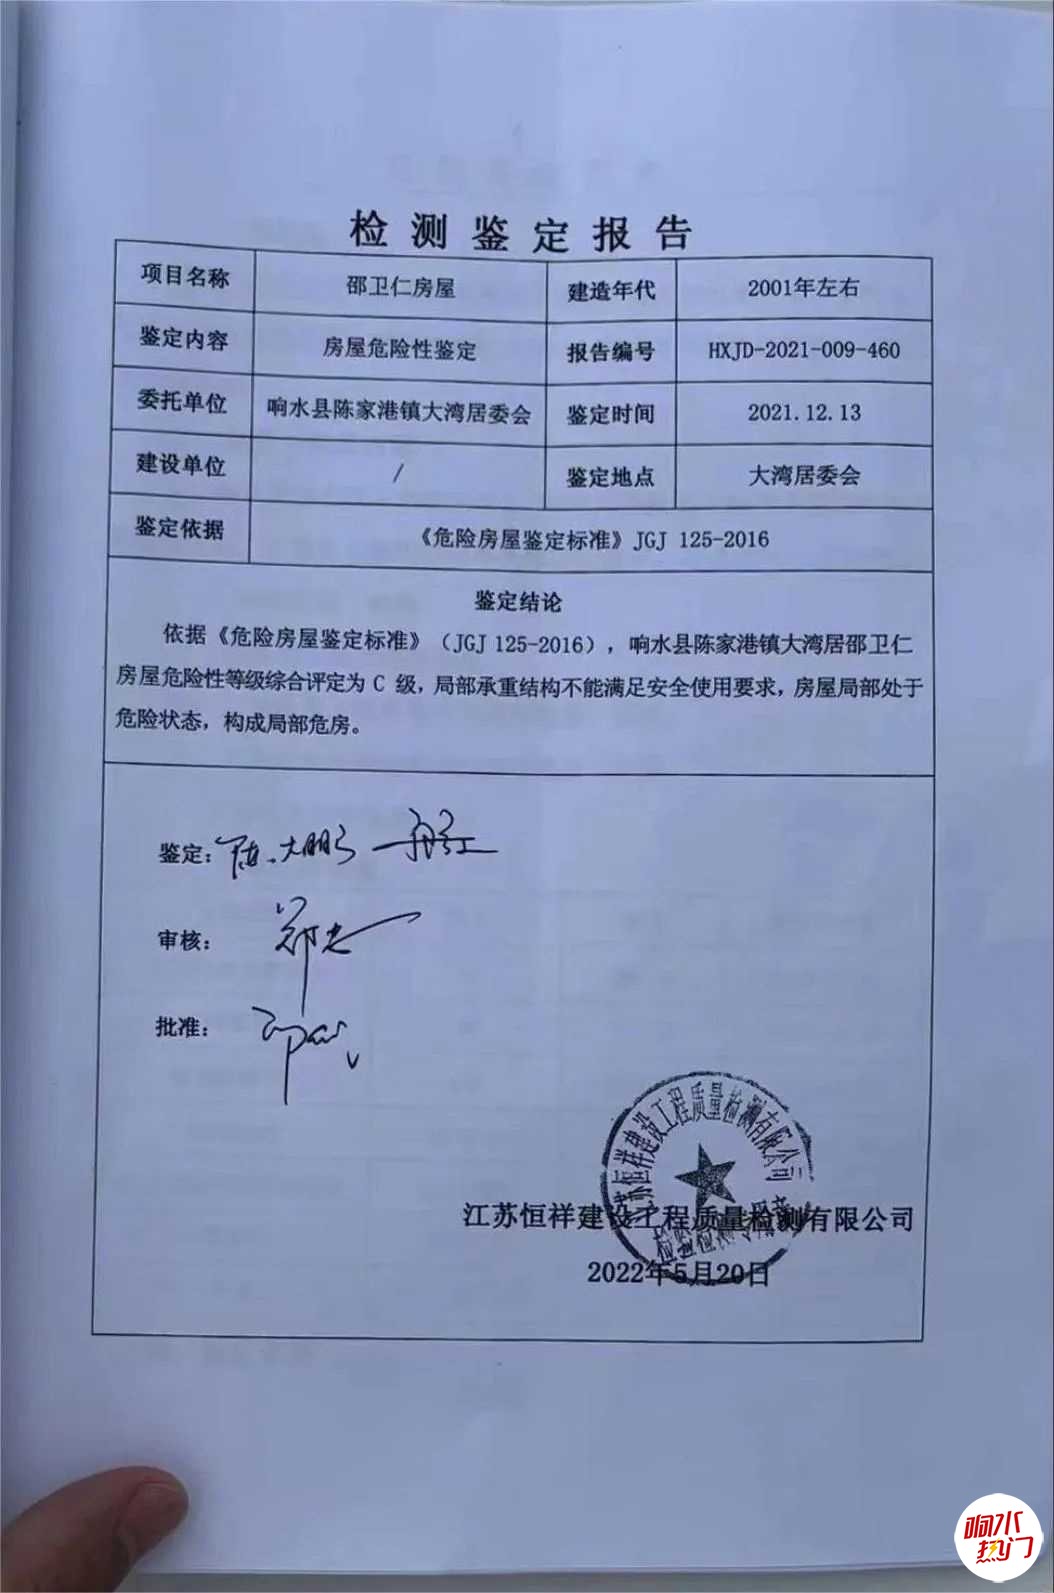 检测鉴定报告
项目名称 邵卫仁房屋 建造年代 2001年左右
鉴定内容 房屋危险性鉴定 报告编号 HXJD-2021-009-460
委托单位 响水县陈家港镇大湾居委会 鉴定时间 2021.12.13
建设单位 / 鉴定地点 大湾居委会
鉴定依据 《危险房屋鉴定标准》JGJ 125-2016
鉴定结论
依据《危险房屋鉴定标准》（JGJ 125-2016），响水县陈家港镇大湾居邵卫仁
房屋危险性等级综合评定为 C 级，局部承重结构不能满足安全使用要求，房屋局部处于
危险状态，构成局部危房。
鉴定：陈大鹏
审核：
批准：
江苏恒祥建设工程质量检测有限公司
江苏恒祥建设工程质量检测有限公司
2022年5月20日
响水
热门